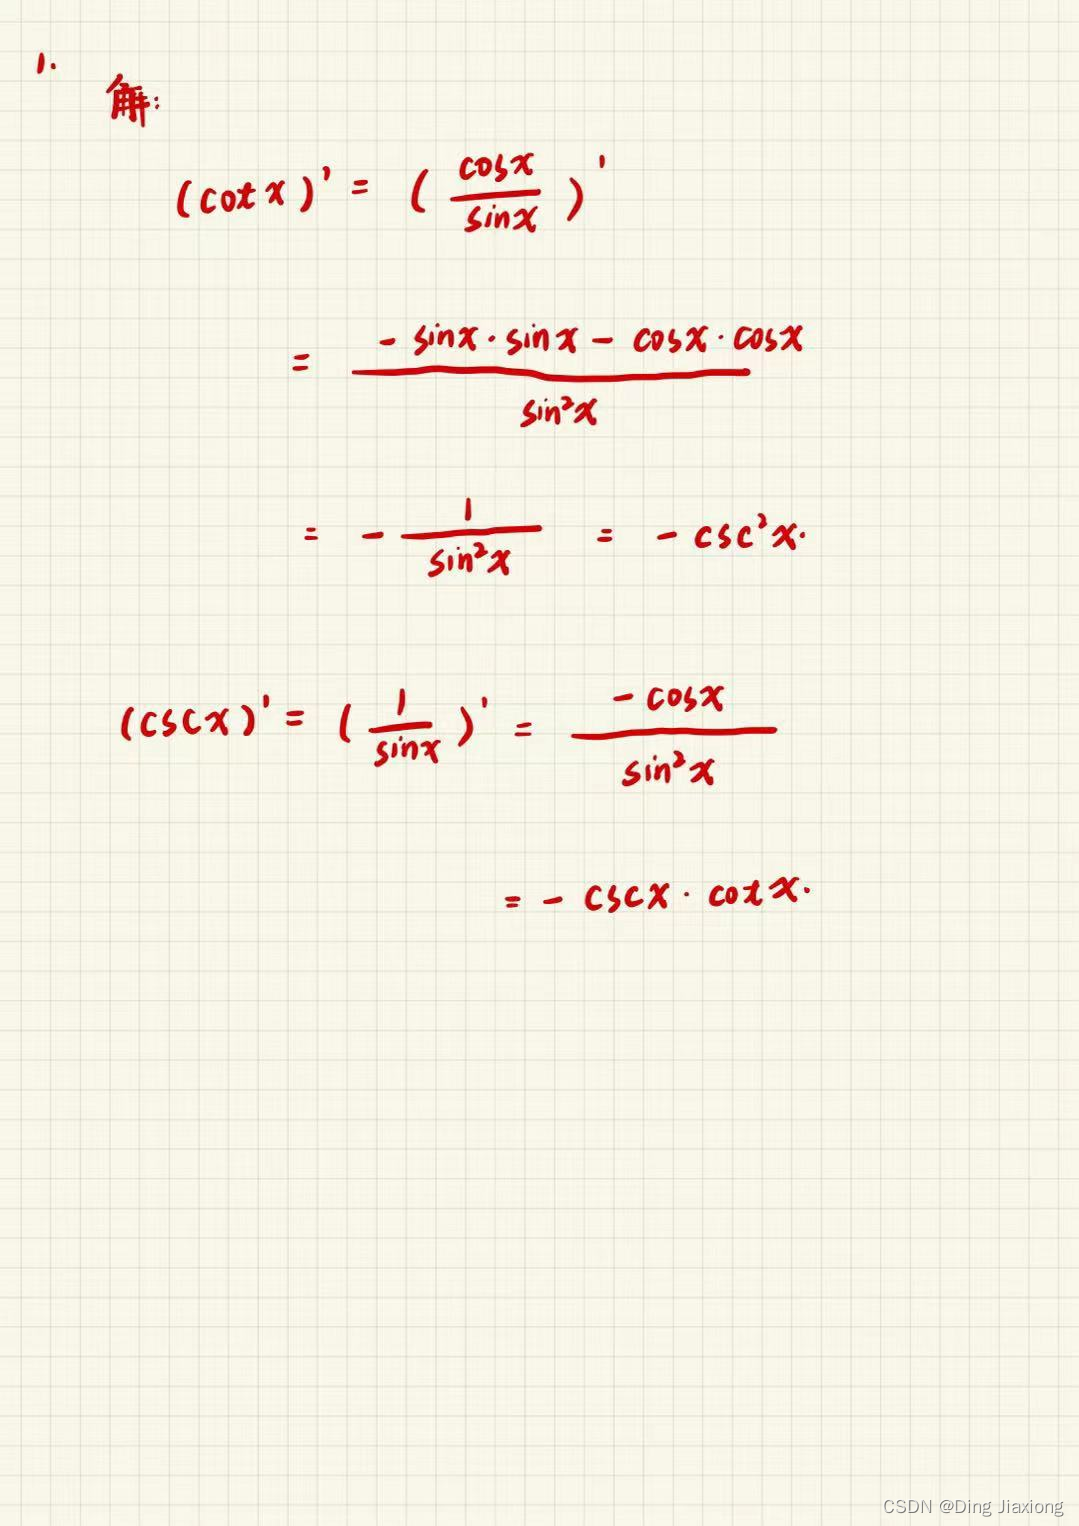 1.
解:
(cot x)' = (cosx/sinx)'
= (- sinx · sinx - cosx · cosx)/sin²x
= - 1/sin²x = - csc²x.
(cscx)' = (1/sinx)' = - cosx/sin²x
= - cscx · cotx.
CSDN @Ding Jiaxiong